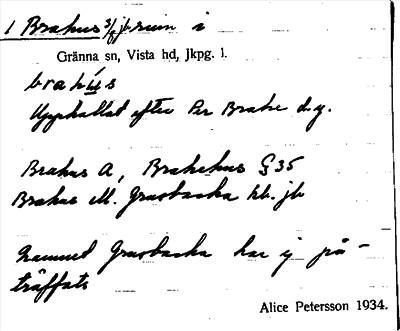 1 Brahus 3/4 jb ruin i
Gränna sn, Vista hd, Jkpg. l.
brahùs
Uppkallat efter Per Brahe d.y.
Brahus A, Brahehus G 35
Brahus el. Grusbacka hb. jb
Namnet Grusbacka har ej på-
träffats
Alice Petersson 1934.